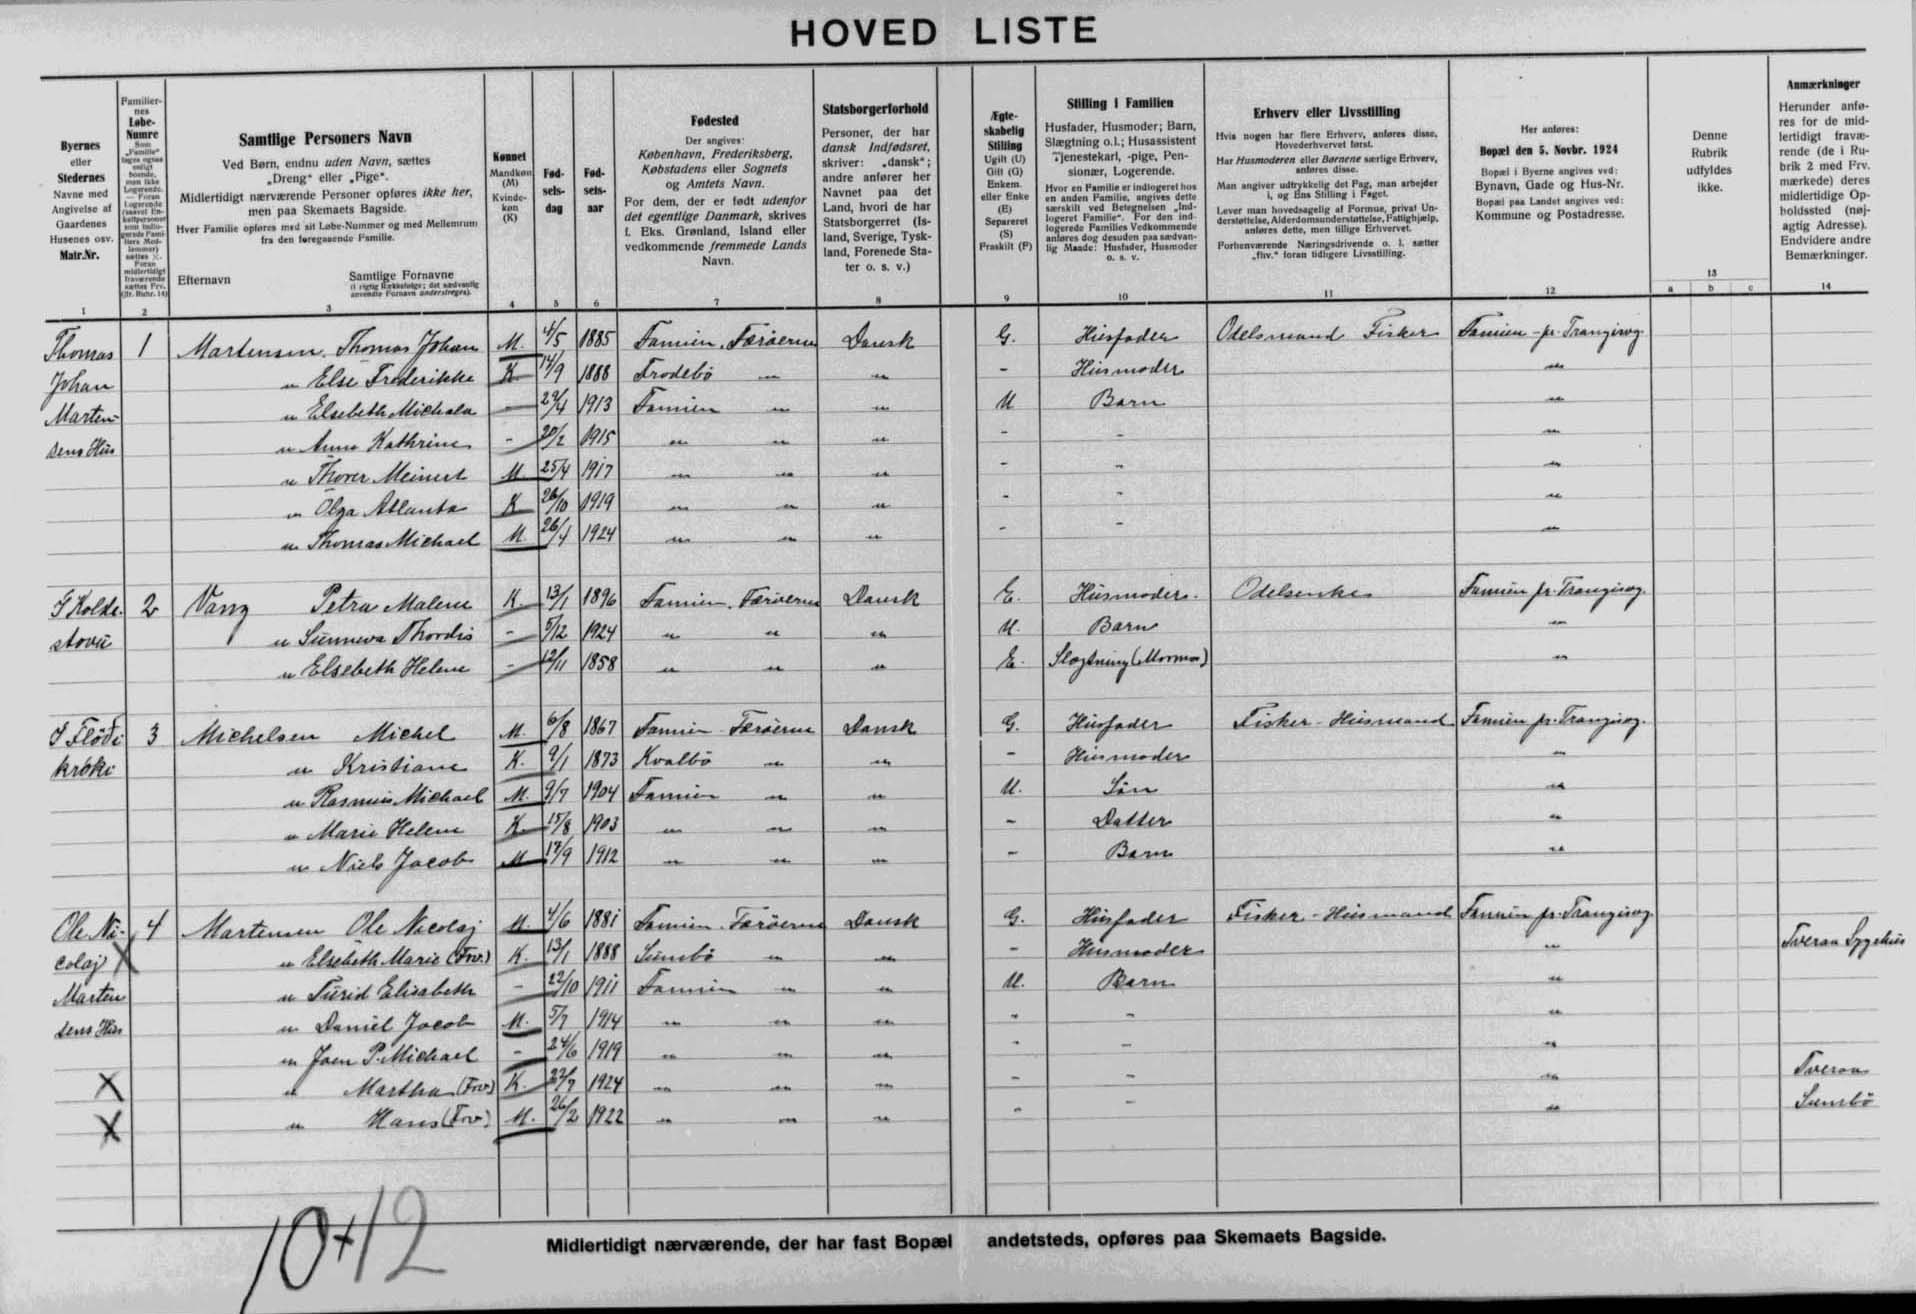 HOVED LISTE
Byernes
eller
Stedernes
Navne med
Angivelse af
Gaardenes
Husenes osv.
Matr.Nr.
1
Familier-
nes
Løbe-
Numre
Som
„Familie"
tages ogsaa
enligt
boende,
men ikke
Logerende.
— Foran
Logerende
(saavel En-
keltpersoner
som indlo-
gerede Fami-
liers Med-
lemmer)
sættes ×.
Foran
midlertidigt
fraværende
sættes Frv.
(jfr. Rubr. 14)
2
Samtlige Personers Navn
Ved Børn, endnu uden Navn, sættes
„Dreng" eller „Pige".
Midlertidigt nærværende Personer opføres ikke her,
men paa Skemaets Bagside.
Hver Familie opføres med sit Løbe-Nummer og med Mellemrum
fra den foregaaende Familie.
Efternavn
Samtlige Fornavne
(i rigtig Rækkefølge; det sædvanlig
anvendte Fornavn understreges).
3
Kønnet
Mandkøn
(M)
Kvinde-
køn
(K)
4
Fød-
sels-
dag
5
Fød-
sels-
aar
6
Fødested
Der angives:
København, Frederiksberg,
Købstadens eller Sognets
og Amtets Navn.
For dem, der er født udenfor
det egentlige Danmark, skrives
f. Eks. Grønland, Island eller
vedkommende fremmede Lands
Navn.
7
Statsborgerforhold
Personer, der har
dansk Indfødsret,
skriver: „dansk";
andre anfører her
Navnet paa det
Land, hvori de har
Statsborgerret (Is-
land, Sverige, Tysk-
land, Forenede Sta-
ter o. s. v.)
8
Ægte-
skabelig
Stilling
Ugift (U)
Gift (G)
Enkem.
eller Enke
(E)
Separeret
(S)
Fraskilt (F)
9
Stilling i Familien
Husfader, Husmoder; Barn,
Slægtning o.l.; Husassistent
Tjenestekarl, -pige, Pen-
sionær, Logerende.
Hvor en Familie er indlogeret hos
en anden Familie, angives dette
særskilt ved Betegnelsen „Ind-
logeret Familie". For den ind-
logerede Families Vedkommende
anføres dog desuden paa sædvan-
lig Maade: Husfader, Husmoder
o. s. v.
10
Erhverv eller Livsstilling
Hvis nogen har flere Erhverv, anføres disse,
Hovederhvervet først.
Har Husmoderen eller Børnene særlige Erhverv,
anføres disse.
Man angiver udtrykkelig det Fag, man arbejder
i, og Ens Stilling i Faget.
Lever man hovedsagelig af Formue, privat Un-
derstøttelse, Alderdomsunderstøttelse, Fattighjælp,
anføres dette, men tillige Erhvervet.
Forhenværende Næringsdrivende o. l. sætter
„fhv." foran tidligere Livsstilling.
11
Her anføres:
Bopæl den 5. Novbr. 1924
Bopæl i Byerne angives ved:
Bynavn, Gade og Hus-Nr.
Bopæl paa Landet angives ved:
Kommune og Postadresse.
12
Denne
Rubrik
udfyldes
ikke.
13
a b c
Anmærkninger
Herunder anfø-
res for de mid-
lertidigt fravæ-
rende (de i Ru-
brik 2 med Frv.
mærkede) deres
midlertidige Op-
holdssted (nøj-
agtig Adresse).
Endvidere andre
Bemærkninger.
14
Thomas 1 Martensen. Thomas Johan M. 4/5 1885 Famien. Færøerne Dansk G. Husfader Odelsmand Fisker Famien - pr. Trangisvog
Johan " Else Frederikke K 14/9 1888 Frodebö " " - Husmoder "
Marten- " Elsebeth Michala - 29/4 1913 Famien " " U Barn "
sens Hus " Anna Kathrine - 20/2 1915 " " " - - "
" Thorer Meinert M 25/4 1917 " " " - " "
" Olga Atlanta K 26/10 1919 " " " - - "
" Thomas Michael M. 26/4 1924 " " " - - "
I Kolde- 2 Vang Petra Malene K. 13/1 1896 Famien. Færöerne Dansk E. Husmoder. Odelsenke Famien pr. Trangisvog.
stovu " Sunneva Thordis - 5/12 1924 " " " U. Barn "
" Elsebeth Helene - 12/11 1858 " " " E. Slægtning (Mormor) "
I Flöði 3 Michelsen Michel M. 6/8 1867 Famien Færöerne Dansk G. Husfader Fisker - Husmand Famien pr. Trangisvog.
króki " Kristiane K. 9/1 1873 Kvalbö " " - Husmoder "
" Rasmus Michael M. 9/7 1904 Famien " " U. Sön "
" Marie Helene K 15/8 1903 " " " - Datter "
" Niels Jacob M 17/9 1912 " " " - Barn "
Ole Ni- 4 Martensen Ole Nicolaj M. 4/6 1881 Famien. Færöerne Dansk G. Husfader Fisker - Husmand Famien pr. Trangisvog.
colaj X " Elsebeth Marie (Frv.) K. 13/1 1888 Sumbö " " - Husmoder " Tveraa Sygehus
Marten " Turid Elisabeth - 22/10 1911 Famien " " U. Barn "
sens Hus " Daniel Jacob M. 5/7 1914 " " " " - "
" Joen P. Michael - 24/6 1919 " " " " - "
X " Martha (Frv) K. 22/7 1924 " " " - - " Tveraa
X " Hans (Frv) M. 26/2 1922 " " " " - " Sumbö
10+12
Midlertidigt nærværende, der har fast Bopæl andetsteds, opføres paa Skemaets Bagside.